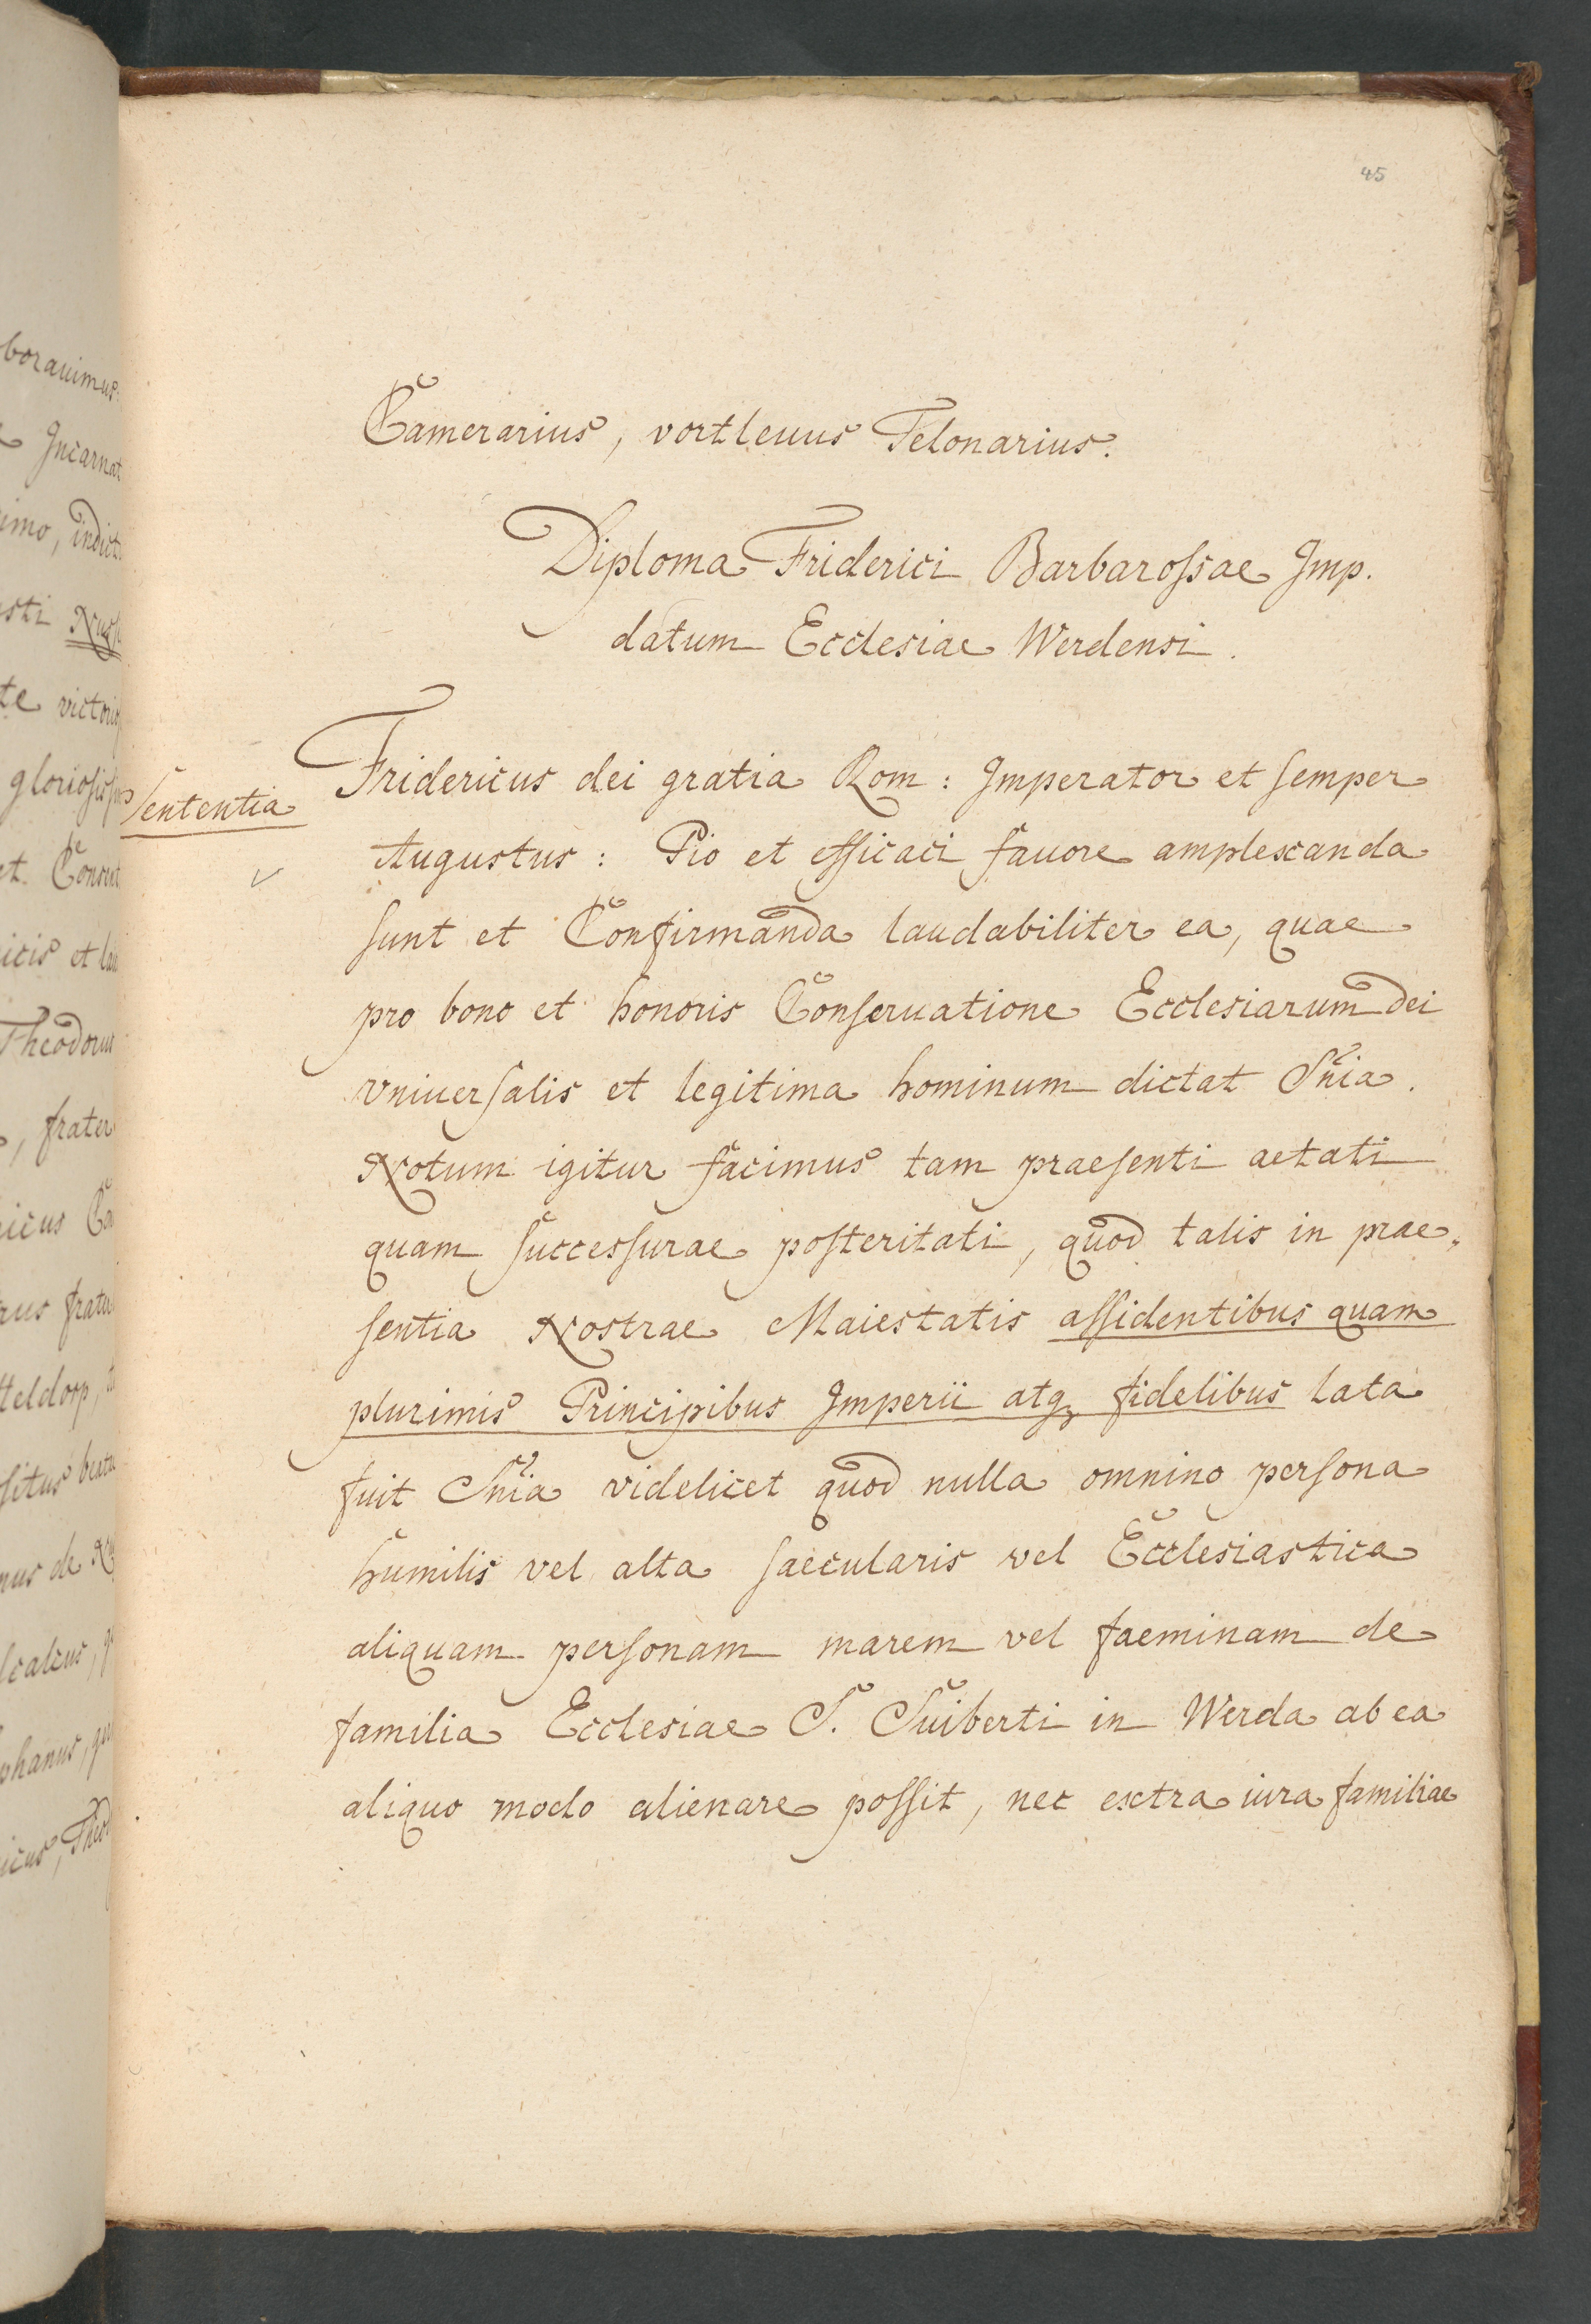 45
Camerarius, vortleuus Telonarius.
Diploma Friderici Barbarossae Imp.
datum Ecclesiae Werdensi.
Sententia
Fridericus dei gratia Rom: Imperator et semper
Augustus: Pio et efficaci favore amplexanda
sunt et Confirmanda laudabiliter ea, quae
pro bono et honoris Conseruatione Ecclesiarum dei
vniuersalis et legitima hominum dictat Sñia.
Notum igitur facimus tam praesenti aetati
quam successurae posteritati, quod talis in prae„
sentia Nostrae Maiestatis assidentibus quam
plurimis Principibus Imperii atq fidelibus lata
fuit Sñia videlicet quod nulla omnino persona
humilis vel alta saecularis vel Ecclesiastica
aliquam personam marem vel faeminam de
familia Ecclesiae S. Suiberti in Werda ab ea
aliquo modo alienare possit, nec extra iura familiae